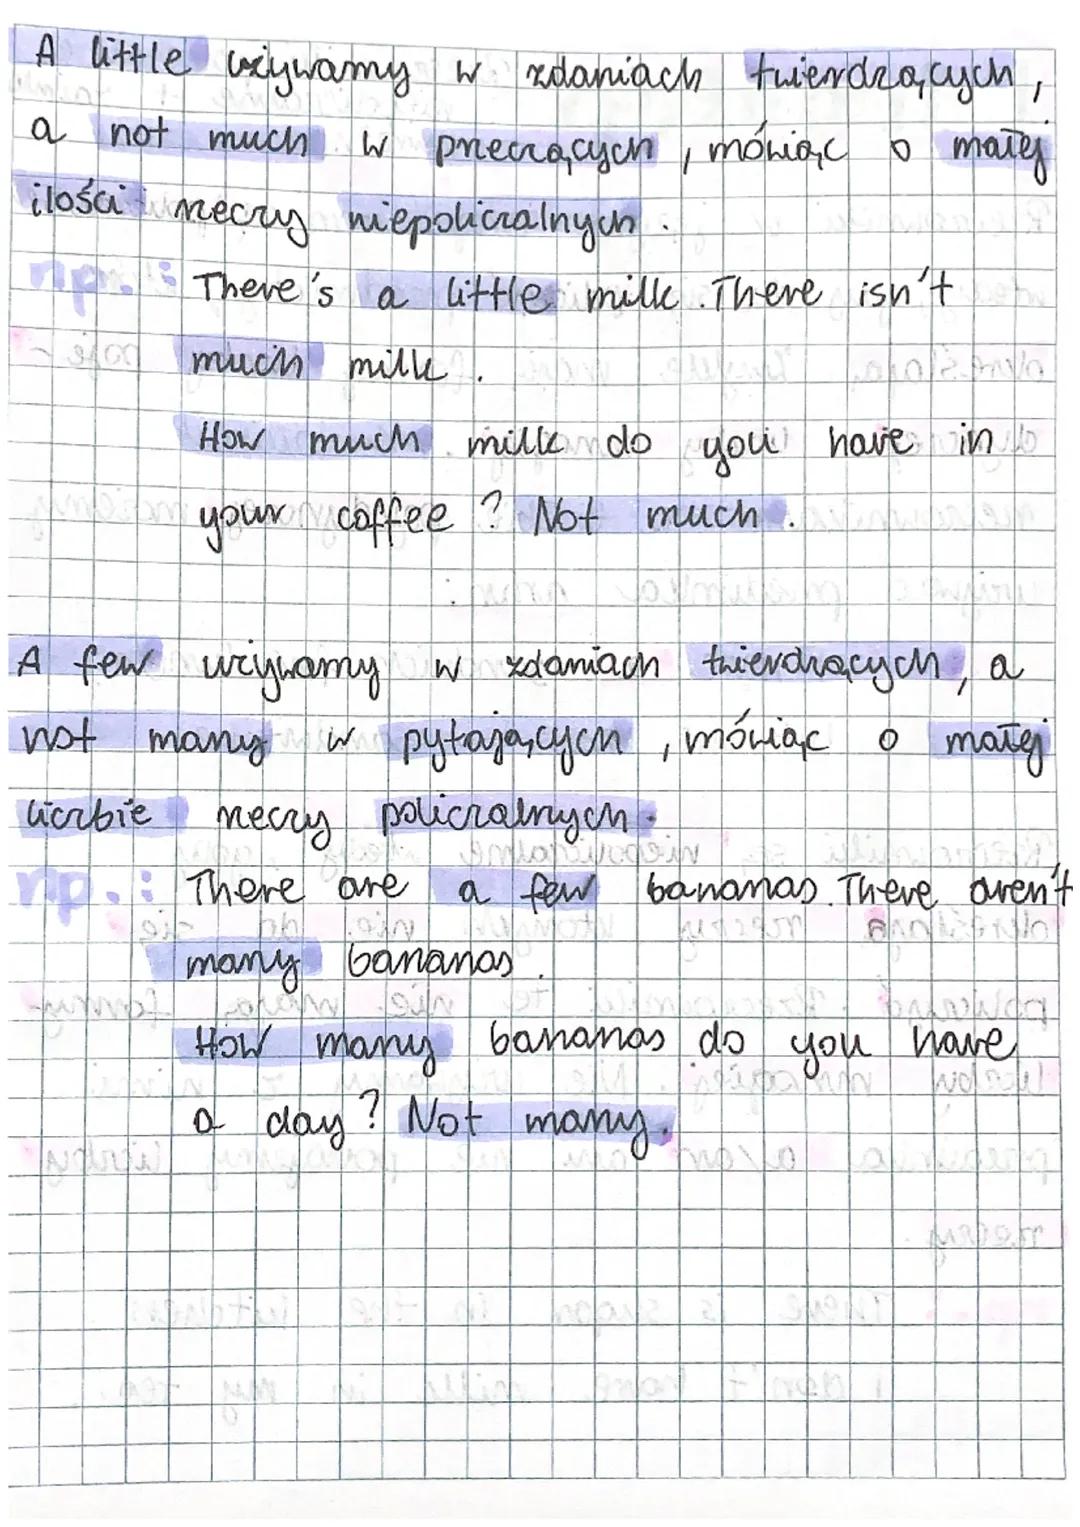 A little używamy w zdaniach twierdzących,
a not much w przeczących, mówiąc o małej
ilości rzeczy niepoliczalnych.
np.: There's a little milk. There isn't
much milk.
How much milk do you have in
your coffee? Not much.
A few używamy w zdaniach twierdzących, a
not many w pytających, mówiąc o małej
liczbie rzeczy policzalnych.
np.: There are a few bananas. There aren't
many bananas.
How many bananas do you have
a day? Not many.